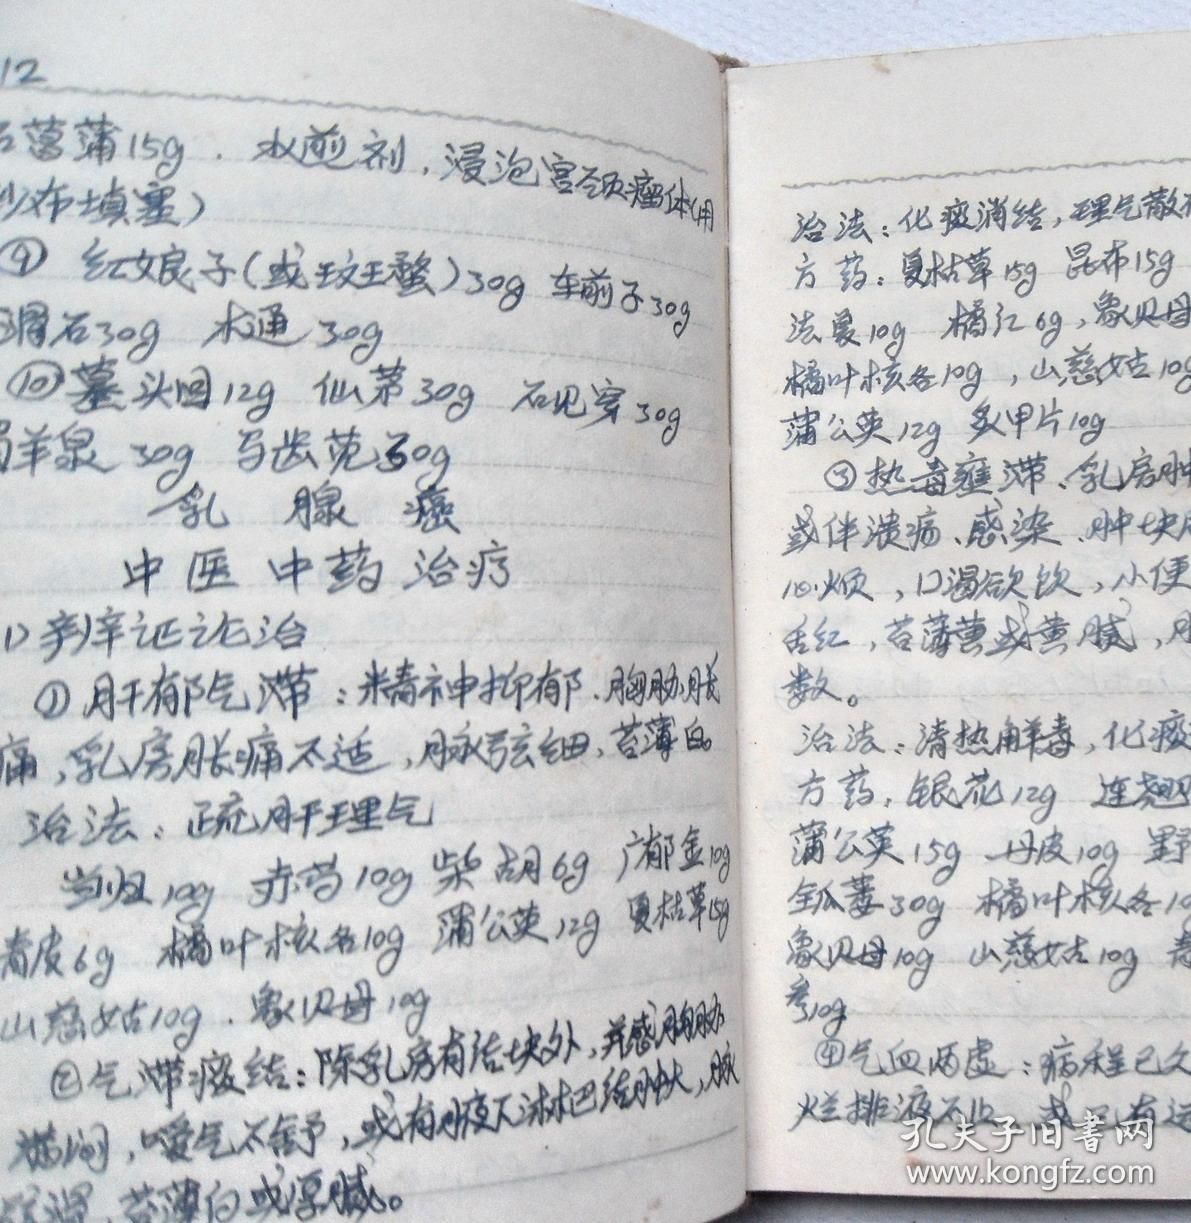 12
石菖蒲15g．水煎剂，浸泡宫颈瘤体（用
纱布填塞）
⑨ 红娘子（或斑蝥）30g 车前子30g
滑石30g 木通30g
⑩墓头回12g 仙茅30g 石见穿30g
蜀羊泉30g 马齿苋30g
乳腺癌
中医中药治疗
1）辨证论治
①肝郁气滞：精神抑郁．胸胁胀
痛，乳房胀痛不适，脉弦细，苔薄白。
治法：疏肝理气
当归10g 赤芍10g 柴胡6g 广郁金10g
青皮6g 橘叶核各10g 蒲公英12g 夏枯草15g
山慈姑10g．象贝母10g
②气滞痰结：除乳房有结块外，并感胸胁
满闷，嗳气不舒，或有腋下淋巴结肿大，脉
弦滑，苔薄白或厚腻。
治法：化痰消结，理气散
方药：夏枯草15g 昆布15g
法夏10g 橘红6g，象贝母
橘叶核各10g，山慈姑10g
蒲公英12g 炙甲片10g
③热毒壅滞、乳房肿
或伴溃疡、感染、肿块
心烦，口渴欲饮，小便
舌红，苔薄黄或黄腻，
数。
治法：清热解毒，化痰
方药，银花12g 连翘
蒲公英15g 丹皮10g 野
全瓜蒌30g 橘叶核各10
象贝母10g 山慈姑10g
10g
④气血两虚：病程已久
烂排液不止，或已有
孔夫子旧书网
www.kongfz.com